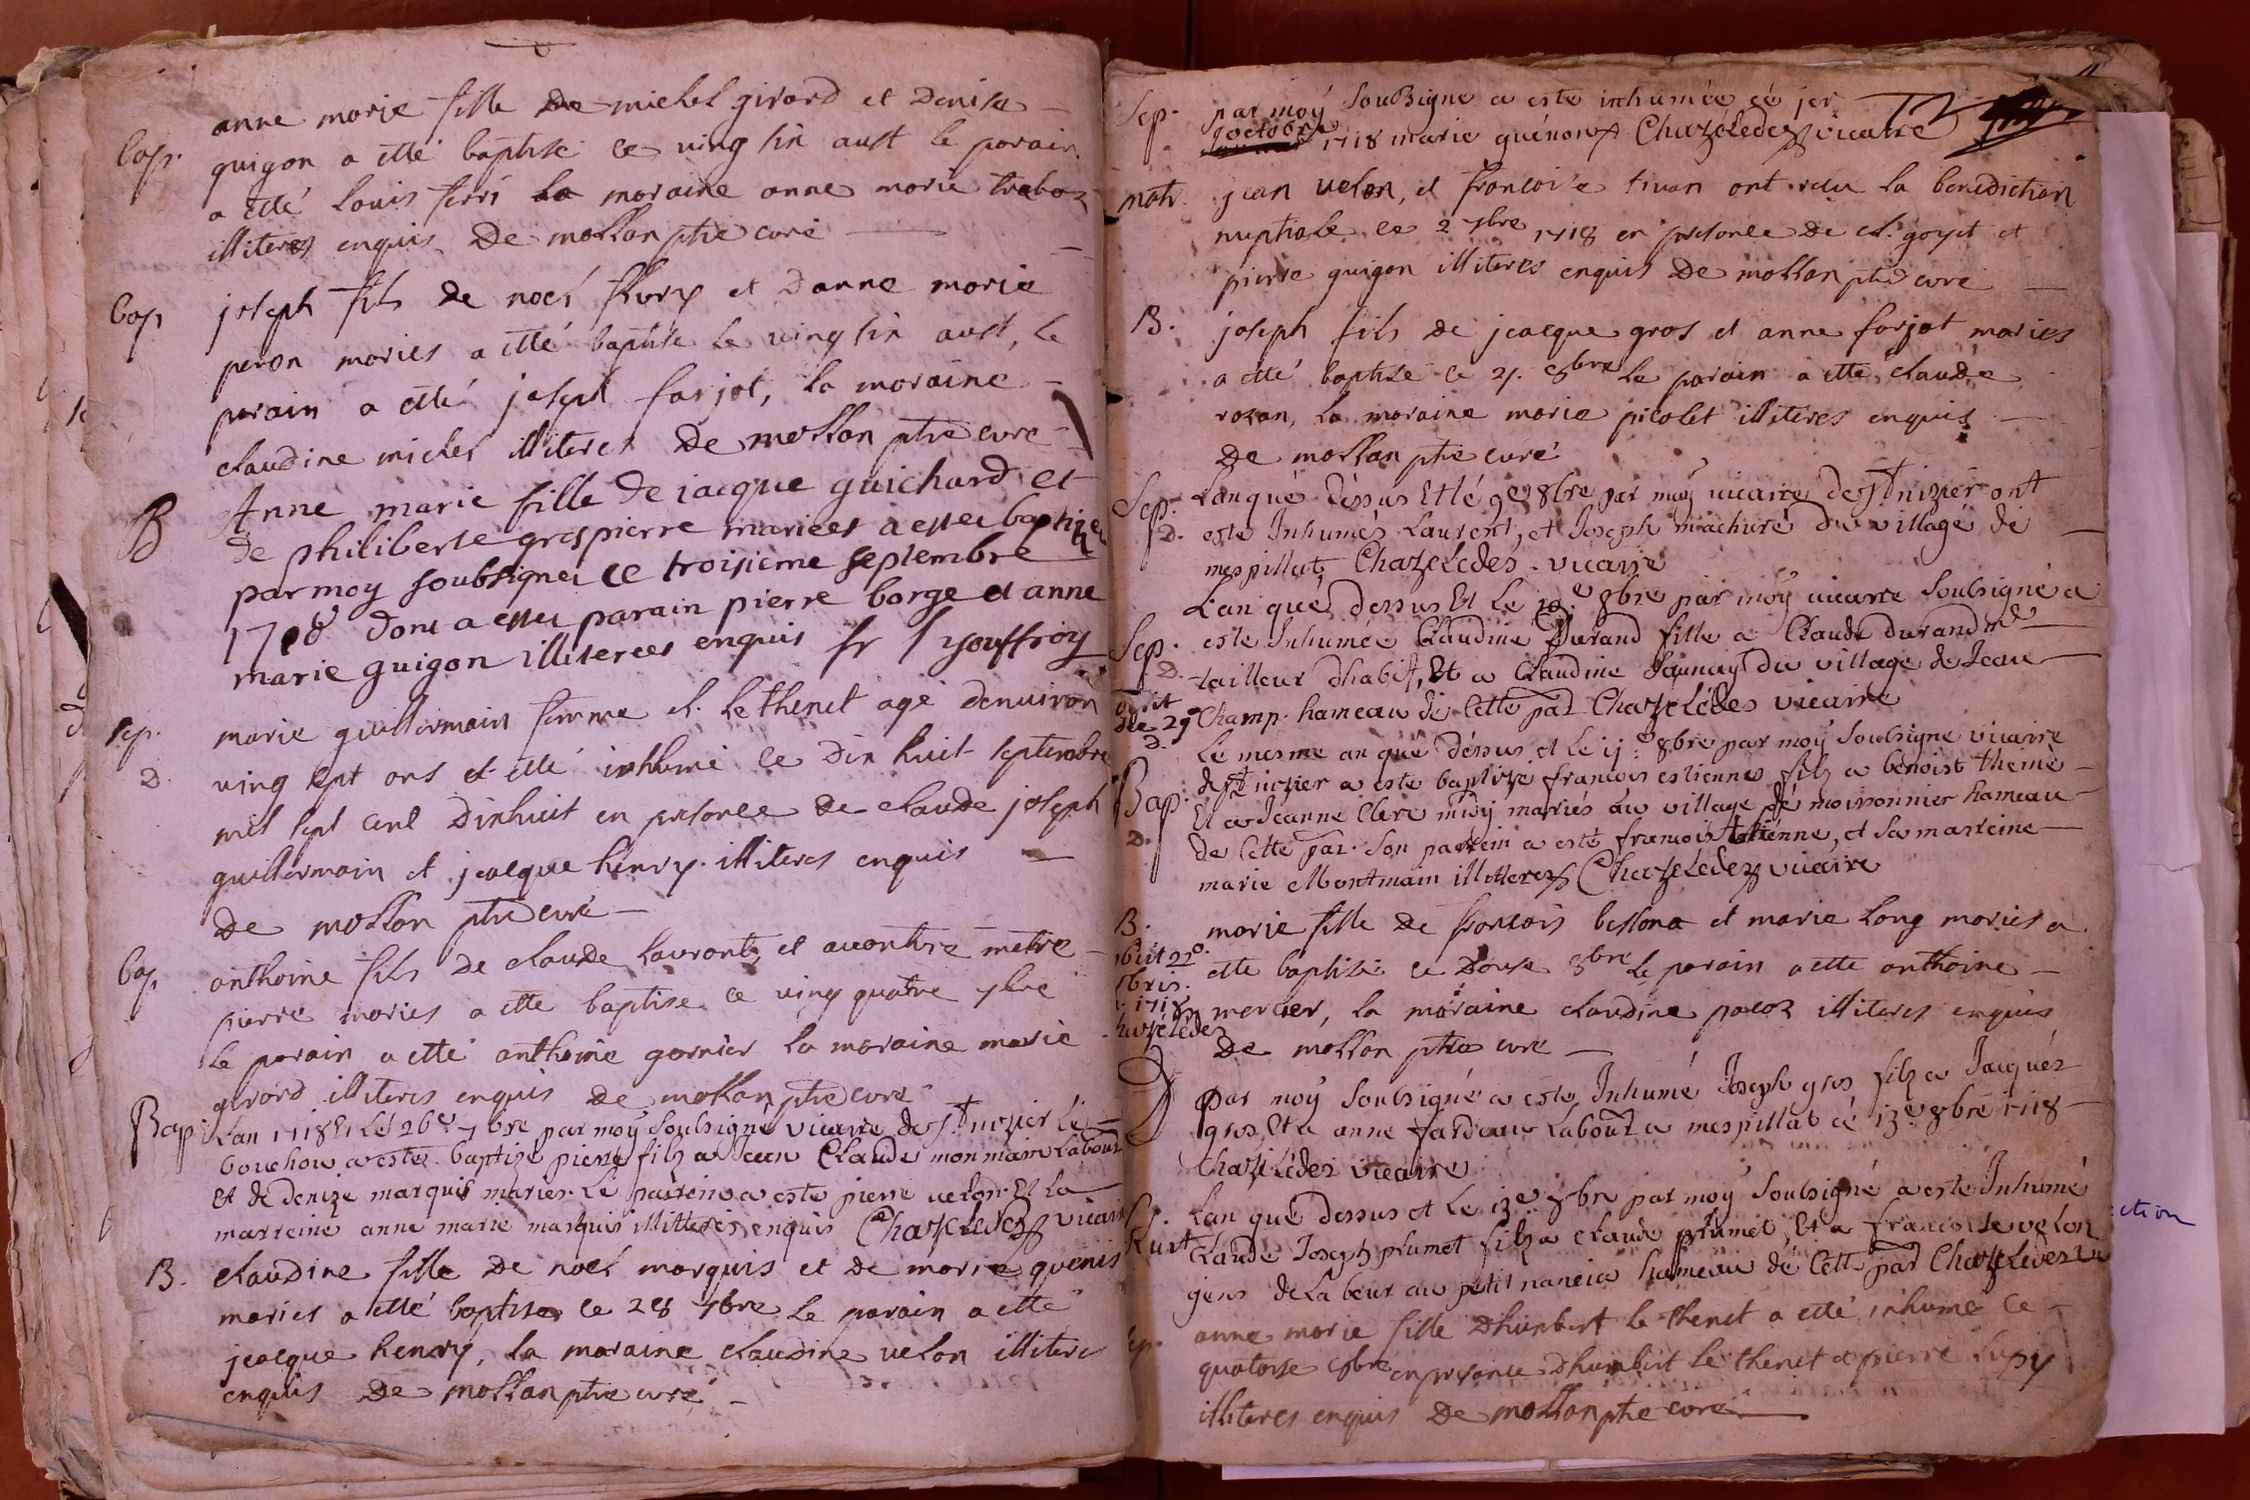 anne marie fille de michel girard et denise
bap. guigon a etté baptisé ce ving sin aust le parain
a etté louis ferri la maraine anne marie
illiteres enquis De mollan ptre curé
bap joseph fils de noel flury et Danne marie
peron maries a etté baptisé le ving sin aust, le
parain a etté joseph farjot, la maraine
claudine michel illiteres De mollan ptre curé
B Anne marie fille de iacque guichard et
de philiberte grospierre mariees a estee baptizee
par moy soubsignei ce troisieme septembre
1718 dont a estei parain pierre borge et anne
marie guigon illiterees enquis fr J youffroy
sep. marie guillermain femme cl. lethenet agé denuiron
D. ving sept ans et etté inhumé ce Dix huit septembre
mil sept cent Dixhuit en presence de claude joseph
guillermain et jacque henry illiteres enquis
De mollan ptre curé
bap anthoine fils de claude laurent, et auonture metre
pierre maries a etté baptisé ce ving quatre 7bre
le parain a etté anthoine garnier la maraine marie
girard illiteres enquis de mollan ptre curé
Bap: L'an 1718 Et Le 26e 7bre par moy soubsigné vicaire de st nizier le
bouchou a este baptize pierre filz a Jean Claude monmain Labour
et de denize marquis maries. Le parrein a este pierre uelon Et la
marreine anne marie marquis illitteres enquis Chazeledes vicaire
B. claudine fille de noel marquis et de marie quenis
maries a etté baptisée ce 28 7bre le parain a etté
jacque henry, la maraine claudine uelon illiteres
enquis De mollan ptre curé
Sep. par moy soubsigne a este inhumée cé jer
octobre 1718 marie guénon Chazeledes vicaire
matr. jean uelon, et francoise tiuan ont recu la benediction
nuptiale ce 2 7bre 1718 en presence de cl. goyet et
pierre guigon illiteres enquis De mollan ptre curé
B. joseph fils de jacque gros et anne farjot maries
a etté baptisé ce 27. 8bre le parain a etté claude
rozan, la maraine marie picolet illiteres enquis
De mollan ptre curé
Sep. Lan qué déssus Et lé 9e 8bre par moy vicaire de St nizier ont
D. este Inhumés Laurent, et Joseph machuré du village de
mespillat, Chazeledés. vicaire
L'an qué dessus Et Le 10.e 8bre par moy vicaire soubsigné a
Sep. este Inhumée Claudine Durand fille a Claude durand me
D. tailleur dhabit, Et a Claudine Jaunay du village de Jean
Champ. hameau de Cette par Chazeledes vicaire
D. Le mesme an qué déssus et le 11e 8bre par moy soubsigne vicaire
Bap: de St nizier a este baptizé francois estiennes filz a benoist
Et a Jeanne Clerc mariés au village de moironnier hameau
D. de Cette par. Son parrein a este francois Estienne, et sa marreine
marie Montmain illitteres Chazeledes vicaire
B. marie fille de francois bellona et marie long maries a
etté baptisé ce Douse 8bre le parain a etté anthoine
1718 mercier, la maraine claudine pacoz illiteres enquis
De mollan ptre curé
par moy soubsigné a este Inhumé Joseph gros filz a Jacques
gros Et a anne fardeau Labour a mespillat cé 13e 8bre 1718
Chazeledes vicaire
Lan qué dessus et Le 13e 8bre par moy soubsigné a este Inhumé
Claude Joseph plumet filz a claude plumet, Et a francoise velon
gens de Labeur au petit nancia hameau de Cette par Chazeledes
sep. anne marie fille Dhumbert le thenet a etté inhumé ce
quatorse 8bre en presence Dhumbert le thenet et pierre lupy
illiteres enquis De mollan ptre curé
ction